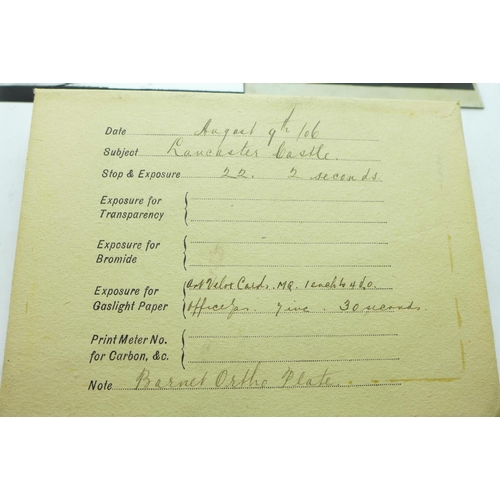 Date August 9th /06
Subject Lancaster Castle.
Stop & Exposure 22. 2 seconds.
Exposure for
Transparency
Exposure for
Bromide
Exposure for Velox Cards. M.Q.
Gaslight Paper Office gas. 7 ins. 30 seconds
Print Meter No.
for Carbon, &c.
Note Barnet Ortho Plate.